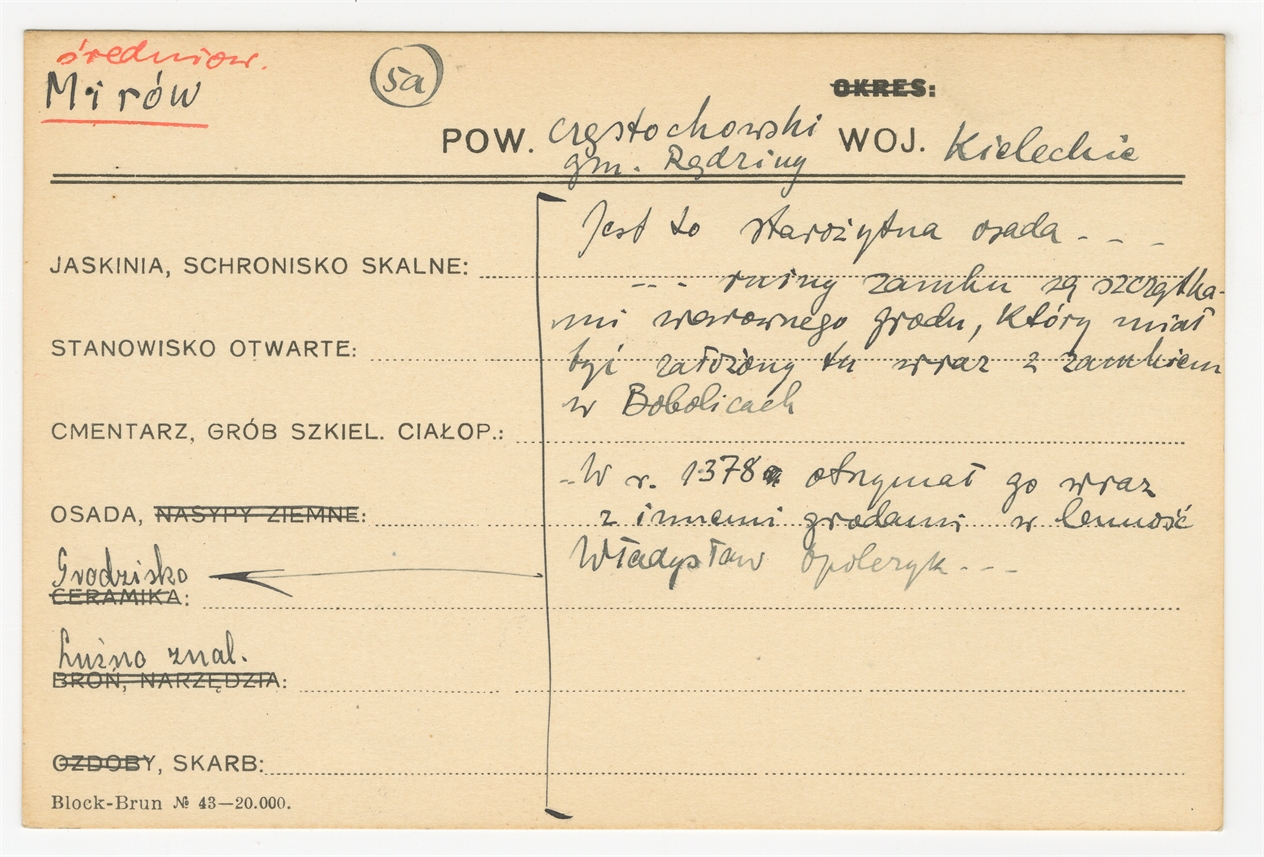 średniow.
Mirów
5a
OKRES:
POW. częstochowski WOJ. Kieleckie
gm. Rędziny
Jest to starożytna osada - - -
JASKINIA, SCHRONISKO SKALNE:
--- ruiny zamku są szczątka-
mi warownego grodu, który miał
STANOWISKO OTWARTE:
być założony tu wraz z zamkiem
w Bobolicach
CMENTARZ, GRÓB SZKIEL. CIAŁOP.:
-W r. 1378 otrzymał go wraz
OSADA, NASYPY ZIEMNE:
z innemi grodami w lenność
Władysław Opolczyk ---
Grodzisko
CERAMIKA:
Luźno znal.
BROŃ, NARZĘDZIA:
OZDOBY, SKARB:
Block-Brun № 43—20.000.